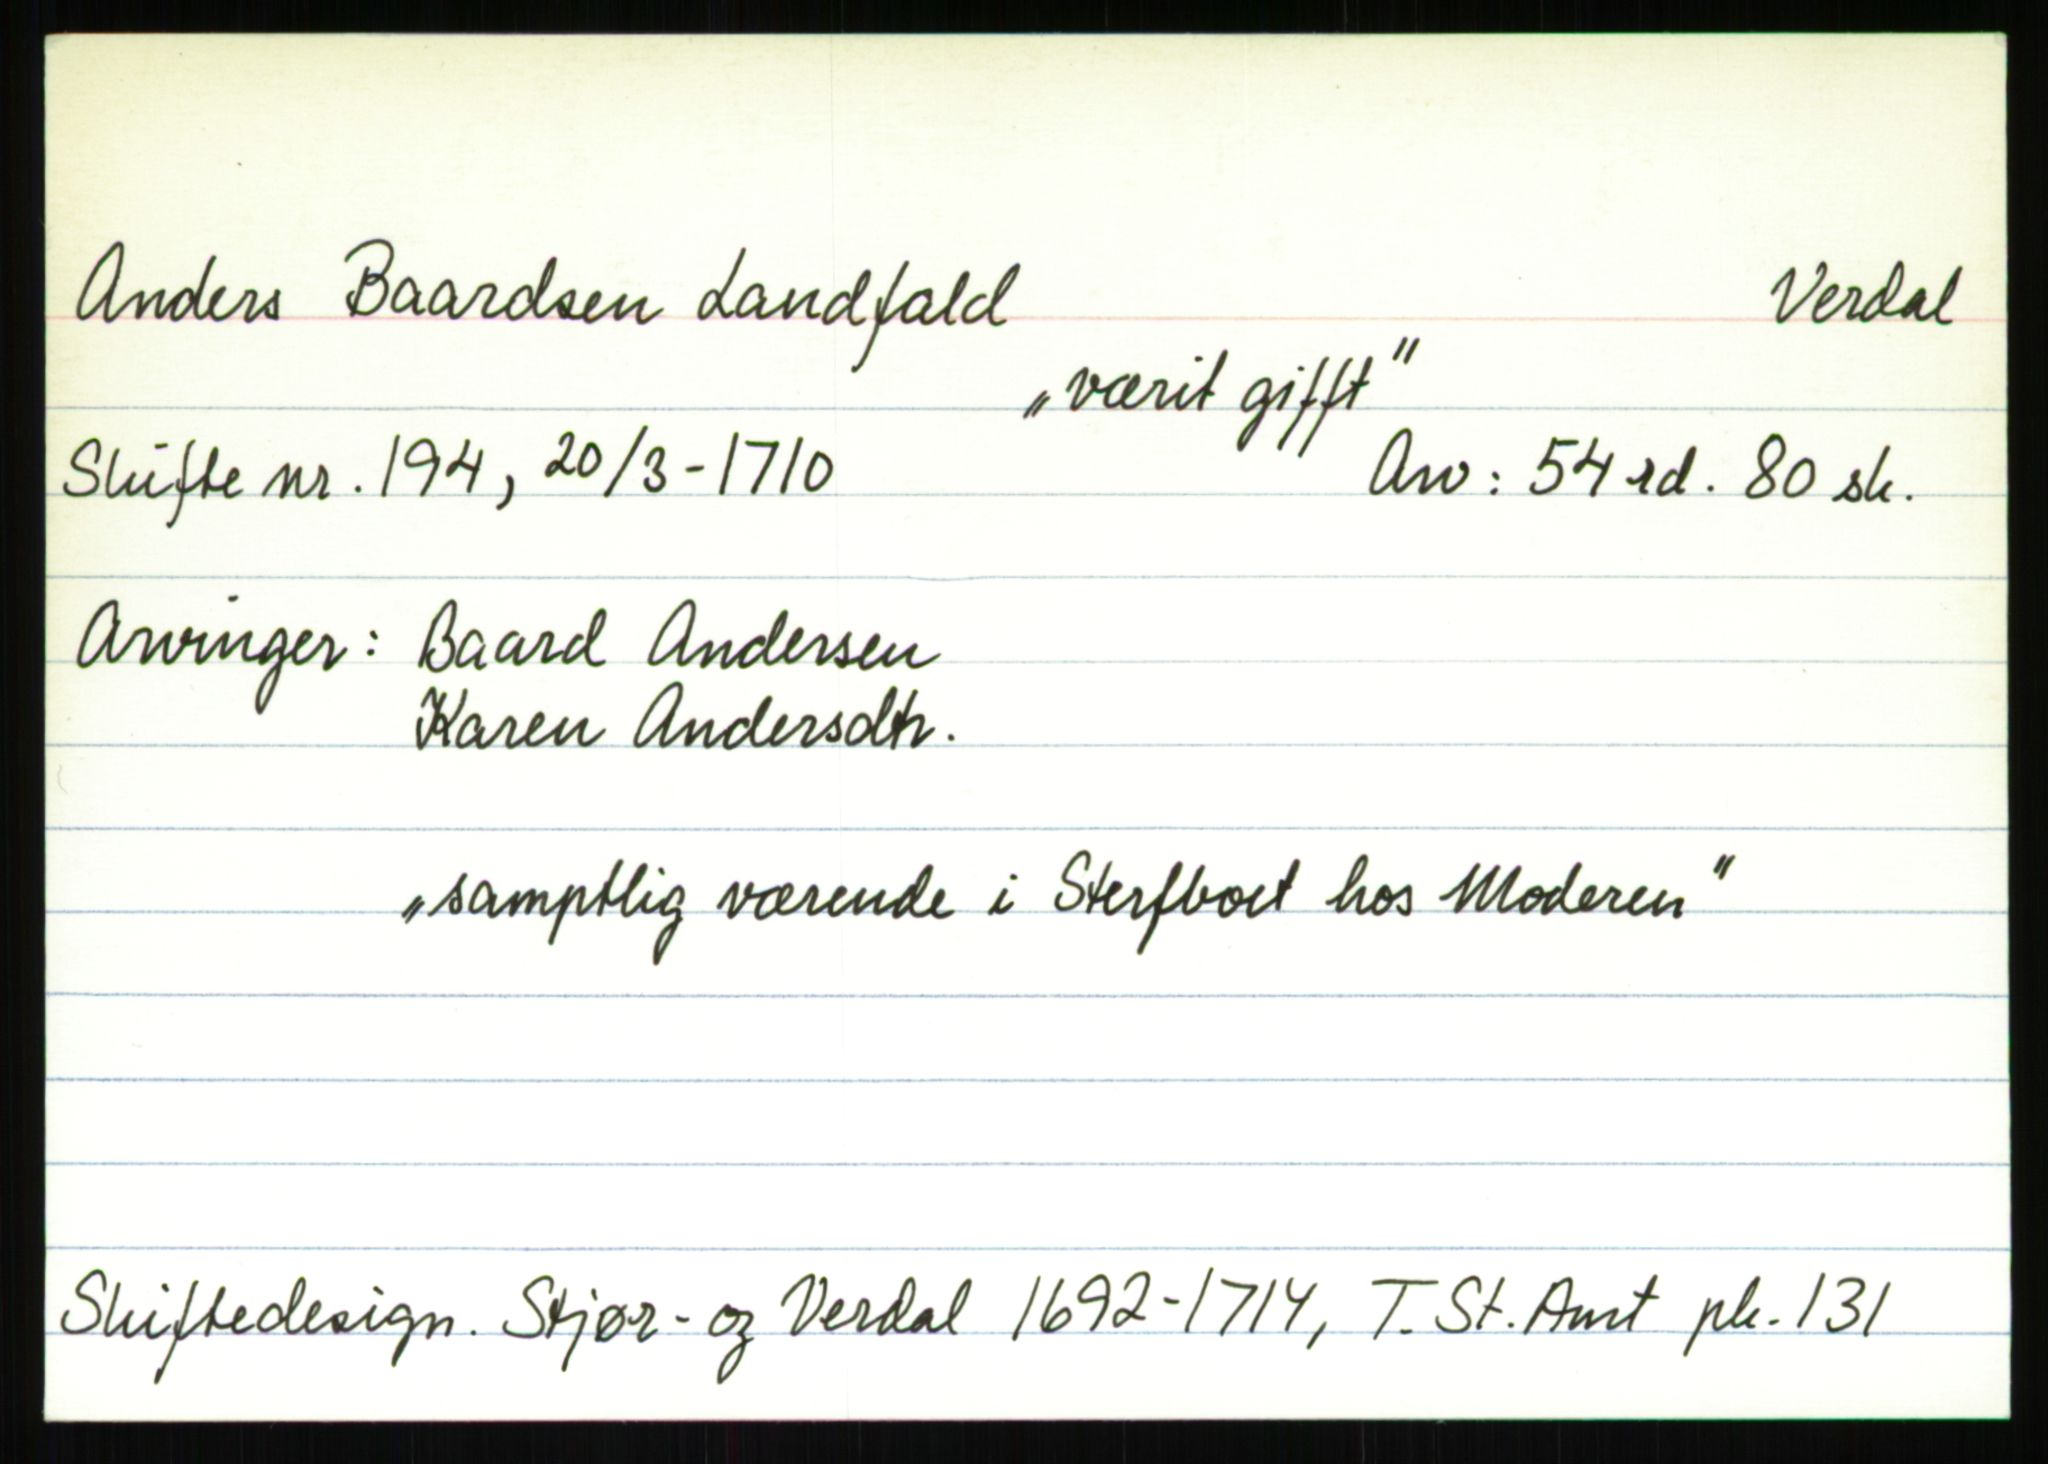 Anders Baardsen Landfald Verdal
„værit gifft"
Skifte nr. 194, 20/3-1710 Arv: 54 rd. 80 sk.
Arvinger: Baard Andersen
Karen Andersdtr.
„samptlig værende i Sterfboet hos Moderen"
Skiftedesign. Stjør- og Verdal 1692-1714, T. St. Amt pk. 131